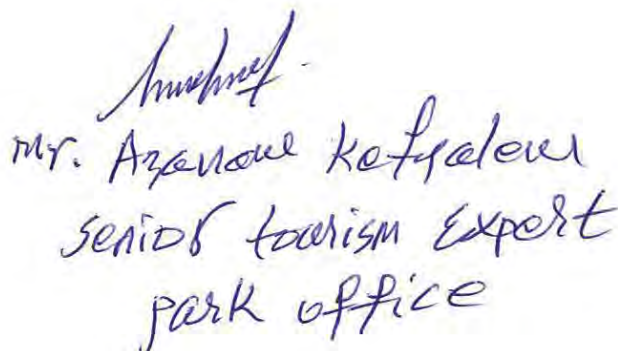 Mr. Azanawe Kefyalew
senior tourism Expert
park office